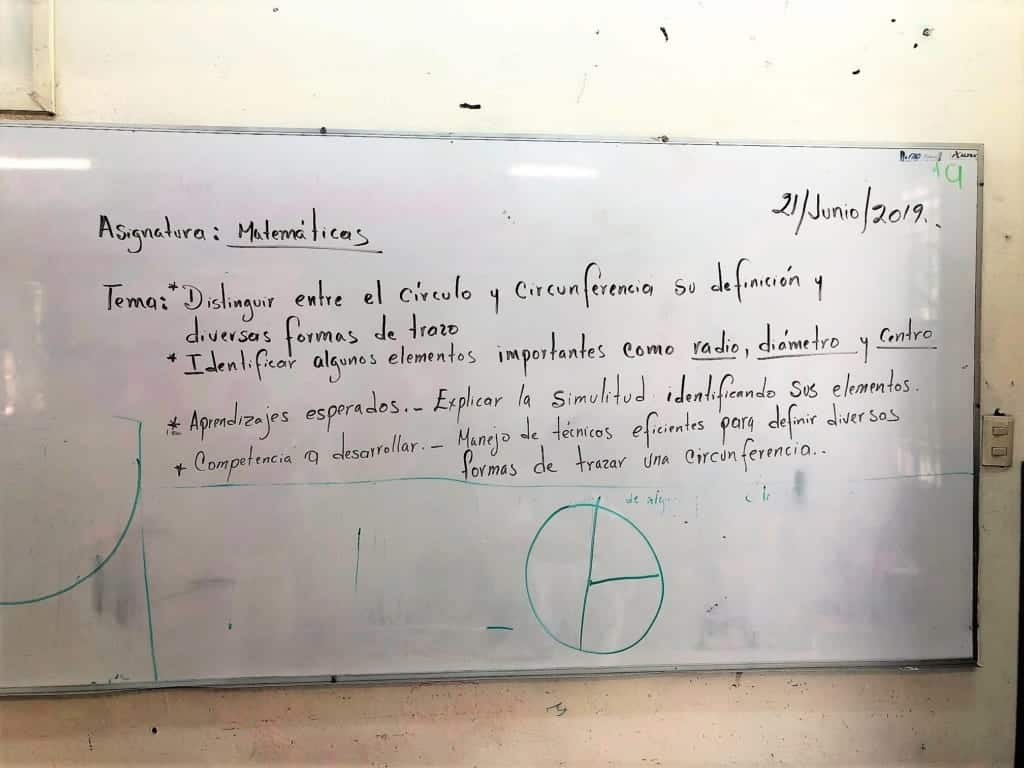 21/Junio/2019.
Asignatura: Matemáticas
Tema: * Distinguir entre el círculo y Circunferencia su definición y
diversas formas de trazo
* Identificar algunos elementos importantes como radio, diámetro y Centro
* Aprendizajes esperados.- Explicar la Simulitud identificando sus elementos.
* Competencia a desarrollar.- Manejo de técnicos eficientes para definir diversas
formas de trazar una circunferencia..